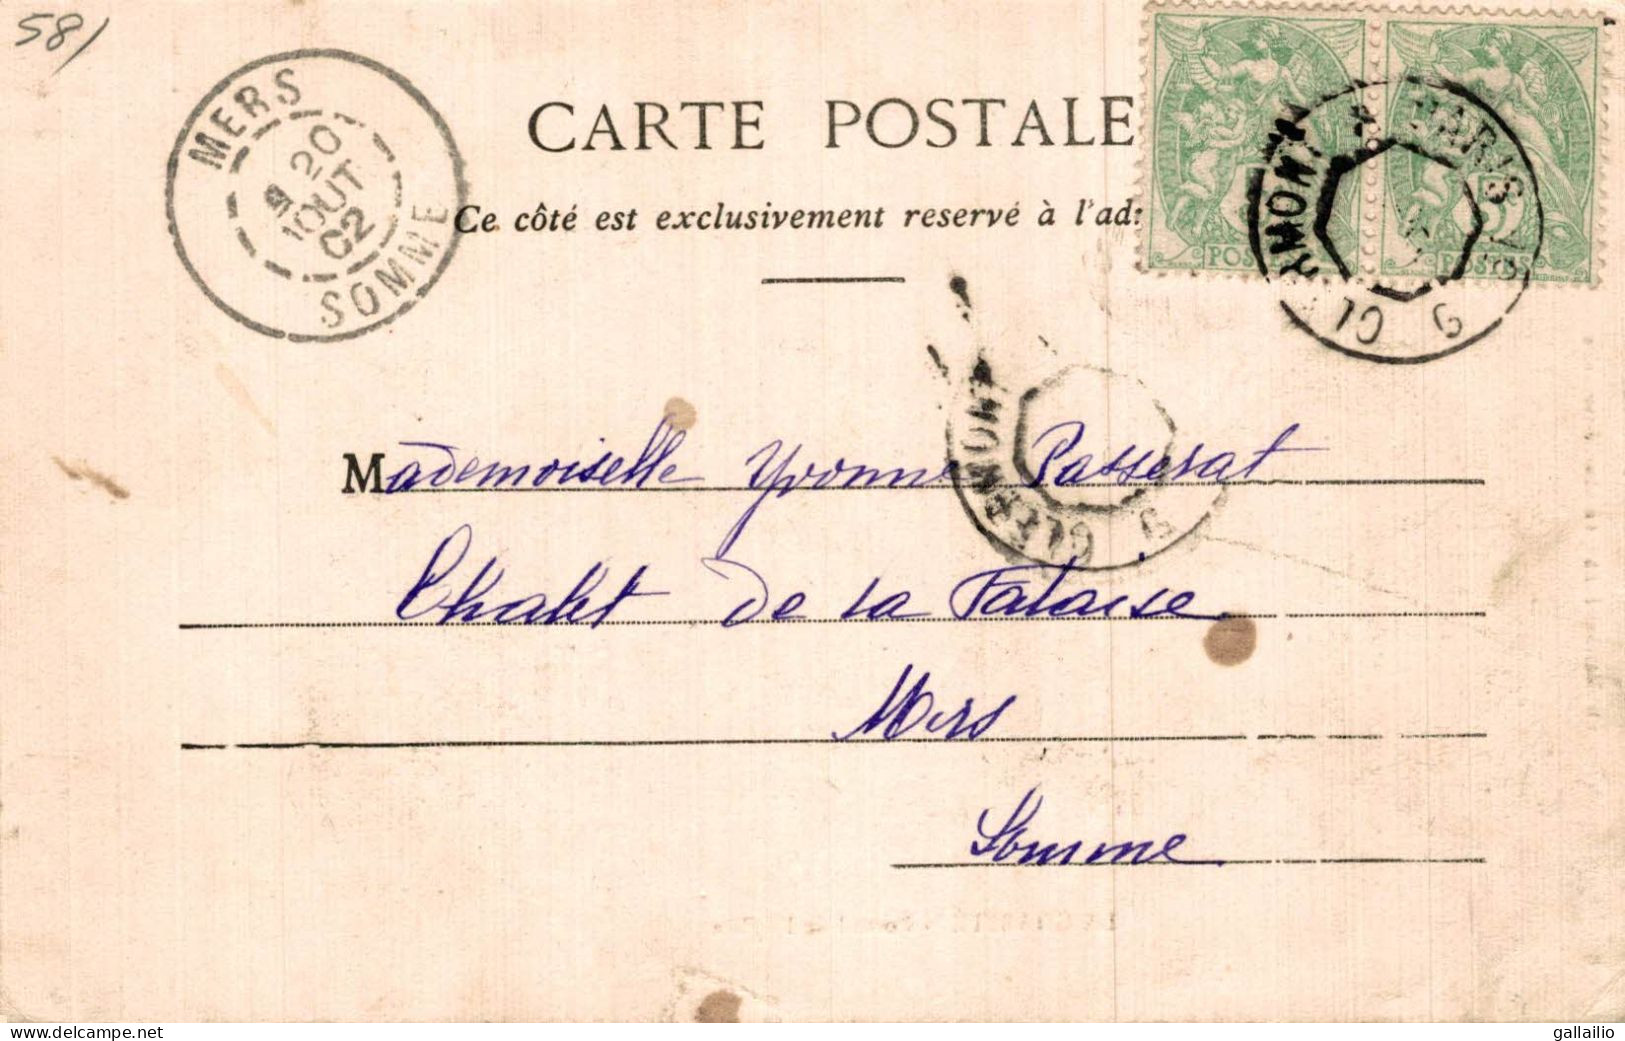 58/
MERS
9 20
AOUT
02
SOMME
CARTE POSTALE
Ce côté est exclusivement reservé à l'ad
POSTES
5
PARIS
CLERMONT
CLERMONT
Mademoiselle Yvonne Passerat
Chalet de la Falaise
Mers
Somme
www.delcampe.net
gallailio